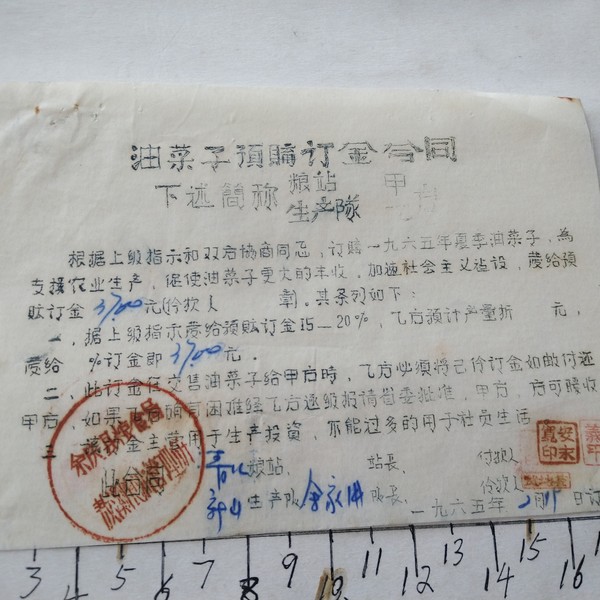 油菜子預購订金合同
下述简称 粮站 甲
生产隊 方
根据上级指示和双方协商同志，订購一九六五年夏季油菜子，為
支援农业生产，促使油菜子更大的丰收，加速社会主义建设，發给預
購订金 37.00 元(份款人 章)。其条列如下：
一，据上级指示發给預購订金15－20%，乙方預计产量折 元，
發给 %订金即 37.00 元。
二、此订金在交售油菜子给甲方时，乙方必须将已份订金如数付还
甲方，如果乙方确有困难经乙方逐级报请省委批准，甲方，方可緩收
三 金主意用于生产投資，不能过多的用于社员生活
此合同 粮站， 站長， 付款人
新山 生产隊 余永洪 隊長， 份款人
一九六五年 2月 日订
3 4 5 6 7 8 9 10 11 12 13 14 15 16